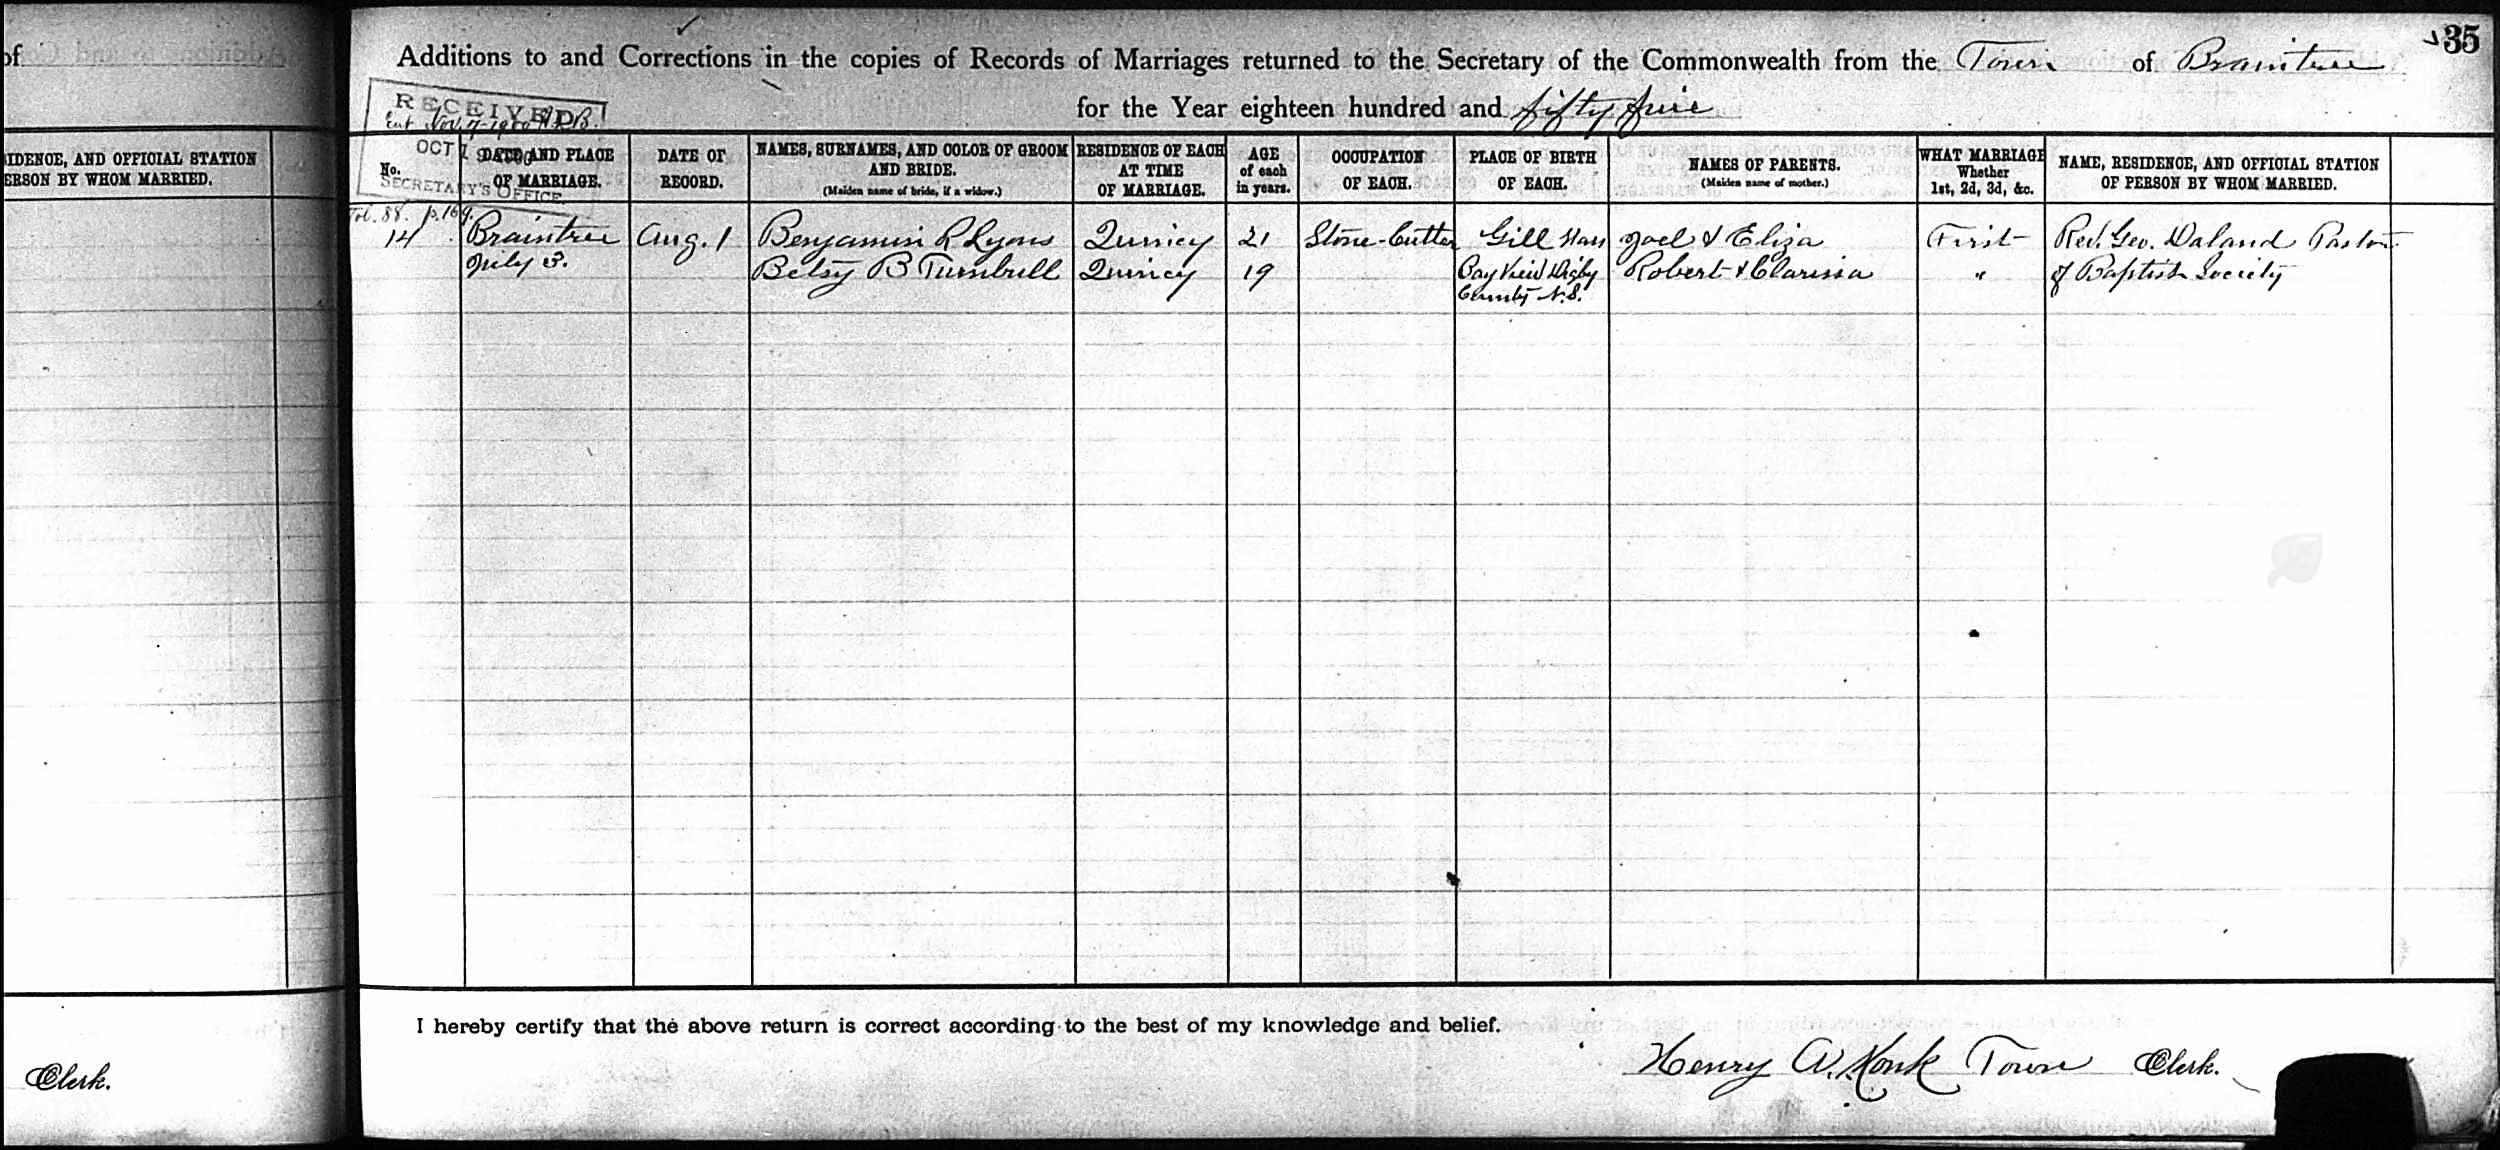 of
IDENCE, AND OFFICIAL STATION
ERSON BY WHOM MARRIED.
Clerk.
35
Additions to and Corrections in the copies of Records of Marriages returned to the Secretary of the Commonwealth from the Town of Braintree
for the Year eighteen hundred and fifty five
RECEIVED
Ent Nov. 7-1900
OCT
SECRETARY'S OFFICE.
No.
DATE AND PLACE
OF MARRIAGE.
DATE OF
RECORD.
NAMES, SURNAMES, AND COLOR OF GROOM
AND BRIDE.
(Maiden name of bride, if a widow.)
RESIDENCE OF EACH
AT TIME
OF MARRIAGE.
AGE
of each
in years.
OCCUPATION
OF EACH.
PLACE OF BIRTH
OF EACH.
NAMES OF PARENTS.
(Maiden name of mother.)
WHAT MARRIAGE
Whether
1st, 2d, 3d, &c.
NAME, RESIDENCE, AND OFFICIAL STATION
OF PERSON BY WHOM MARRIED.
Vol. 88. p. 169.
14 Braintree Aug. 1 Benjamin R Lyons Quincy 21 Stone-Cutter Gill Mass Joel & Eliza First Rev. Geo. Daland Pastor
July 3. Betsy B Turnbull Quincy 19 Bay View Digby Robert & Clarissa " of Baptist Society
County N.S.
I hereby certify that the above return is correct according to the best of my knowledge and belief.
Henry A. Monk Town Clerk.